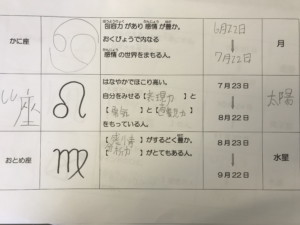 かに座
包容力があり感情が豊か。
おくびょうで内なる
感情の世界をまもる人。
6月22日
7月22日
月
しし座
はなやかでほこり高い。
自分をみせる【表現力】と
【勇気】と【】
をもっている人。
7月23日
8月22日
太陽
おとめ座
【】がするどく豊か。
【】がとてもある人。
8月23日
9月22日
水星